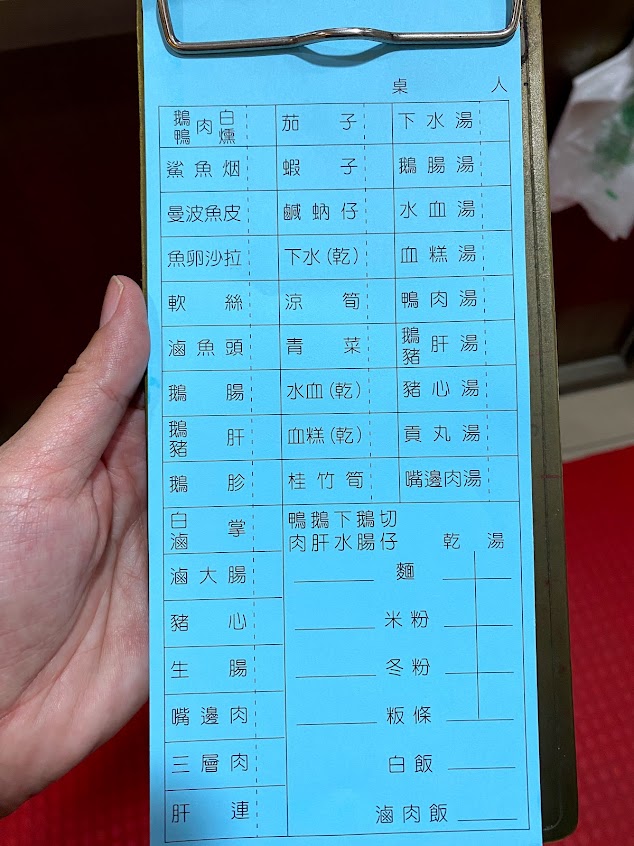 桌 人
鵝鴨肉白燻 茄子 下水湯
鯊魚烟 蝦子 鵝腸湯
曼波魚皮 鹹蚋仔 水血湯
魚卵沙拉 下水(乾) 血糕湯
軟絲 涼筍 鴨肉湯
滷魚頭 青菜 鵝豬肝湯
鵝腸 水血(乾) 豬心湯
鵝豬肝 血糕(乾) 貢丸湯
鵝胗 桂竹筍 嘴邊肉湯
白滷掌
滷大腸
豬心
生腸
嘴邊肉
三層肉
肝連
鴨鵝下鵝切
肉肝水腸仔 乾 湯
麵
米粉
冬粉
粄條
白飯
滷肉飯